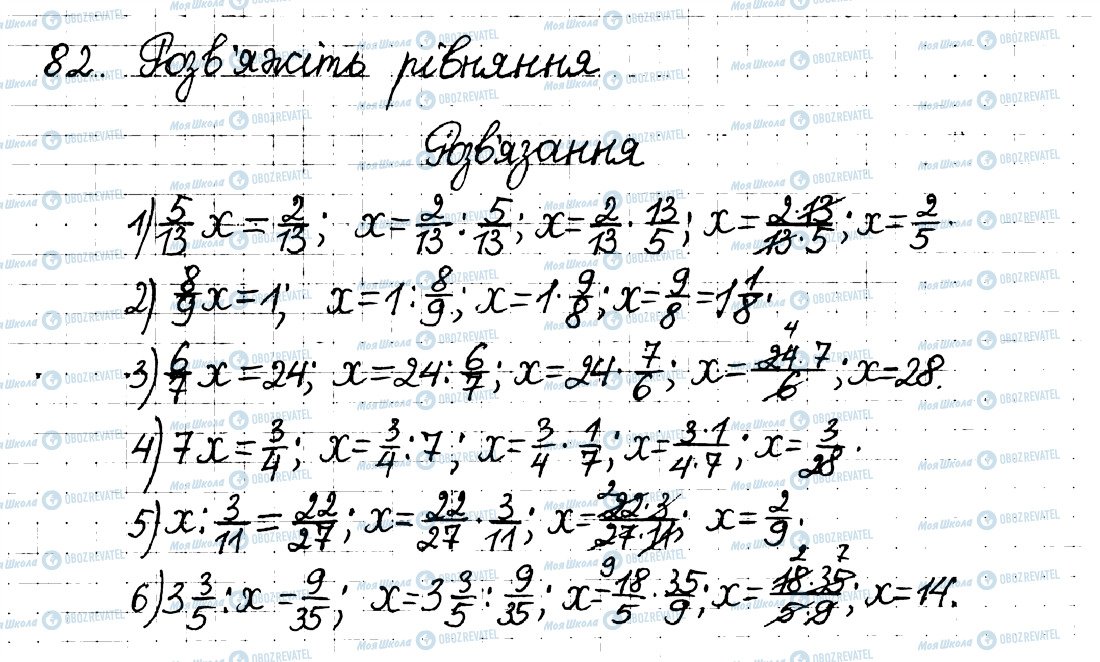 82. Розв'яжіть рівняння
Розв'язання
1) 5/13 x = 2/13; x = 2/13 : 5/13; x = 2/13 · 13/5; x = 2·13/13·5; x = 2/5.
2) 8/9 x = 1; x = 1 : 8/9; x = 1 · 9/8; x = 9/8 = 1 1/8.
3) 6/7 x = 24; x = 24 : 6/7; x = 24 · 7/6; x = 24·7/6; x = 28.
4) 7x = 3/4; x = 3/4 : 7; x = 3/4 · 1/7; x = 3·1/4·7; x = 3/28.
5) x : 3/11 = 22/27; x = 22/27 · 3/11; x = 22·3/27·11; x = 2/9.
6) 3 3/5 : x = 9/35; x = 3 3/5 : 9/35; x = 18/5 · 35/9; x = 18·35/5·9; x = 14.